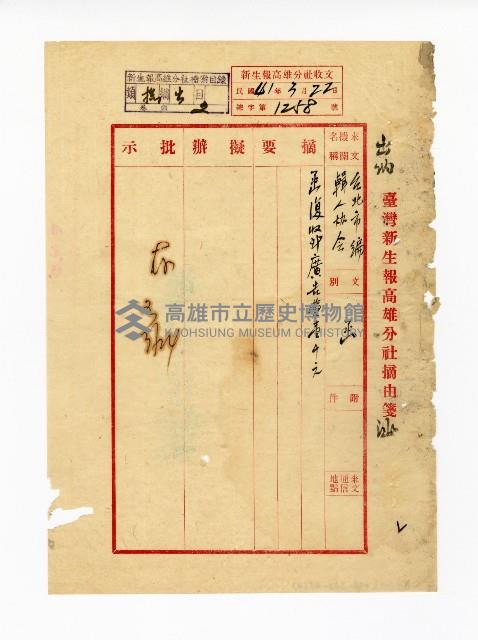 新生報高雄分社收文
民國41年3月22日
總字第1258號
新生報高雄分社檔案目錄
類 綱 目
卷
出納
臺灣新生報高雄分社摘由箋
來文機關名稱
台北市編輯人協会
文別
函
附件
來文通信地點
摘要
擬辦
批示
函復收到廣告費壹千元
存
高雄市立歷史博物館
KAOHSIUNG MUSEUM OF HISTORY